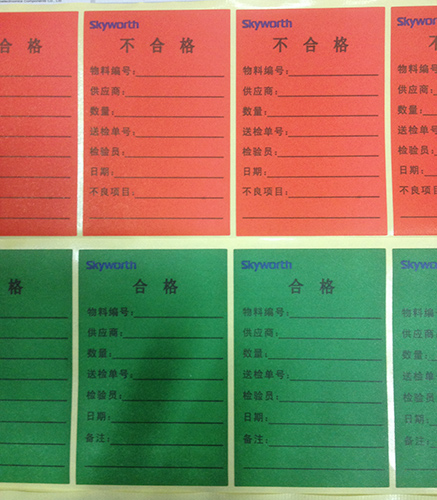 合格
Skyworth
不合格
物料编号:
供应商:
数量:
送检单号:
检验员:
日期:
不良项目:
Skyworth
不合格
物料编号:
供应商:
数量:
送检单号:
检验员:
日期:
不良项目:
Skywo
不
物料编号
供应商:
数量:
送检单
检验员
日期:
不良项
格
Skyworth
合格
物料编号:
供应商:
数量:
送检单号:
检验员:
日期:
备注:
Skyworth
合格
物料编号:
供应商:
数量:
送检单号:
检验员:
日期:
备注:
Skywor
物料编号
供应商:
数量:
送检单号
检验员:
日期:
备注: